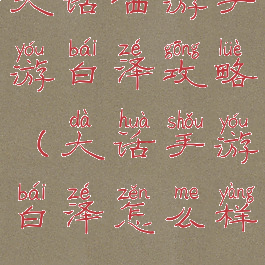 大话西游手
yóu bái zé gōng lüè
游白泽攻略
dà huà shǒu yóu
(大话手游
bái zé zěn me yàng
白泽怎么样